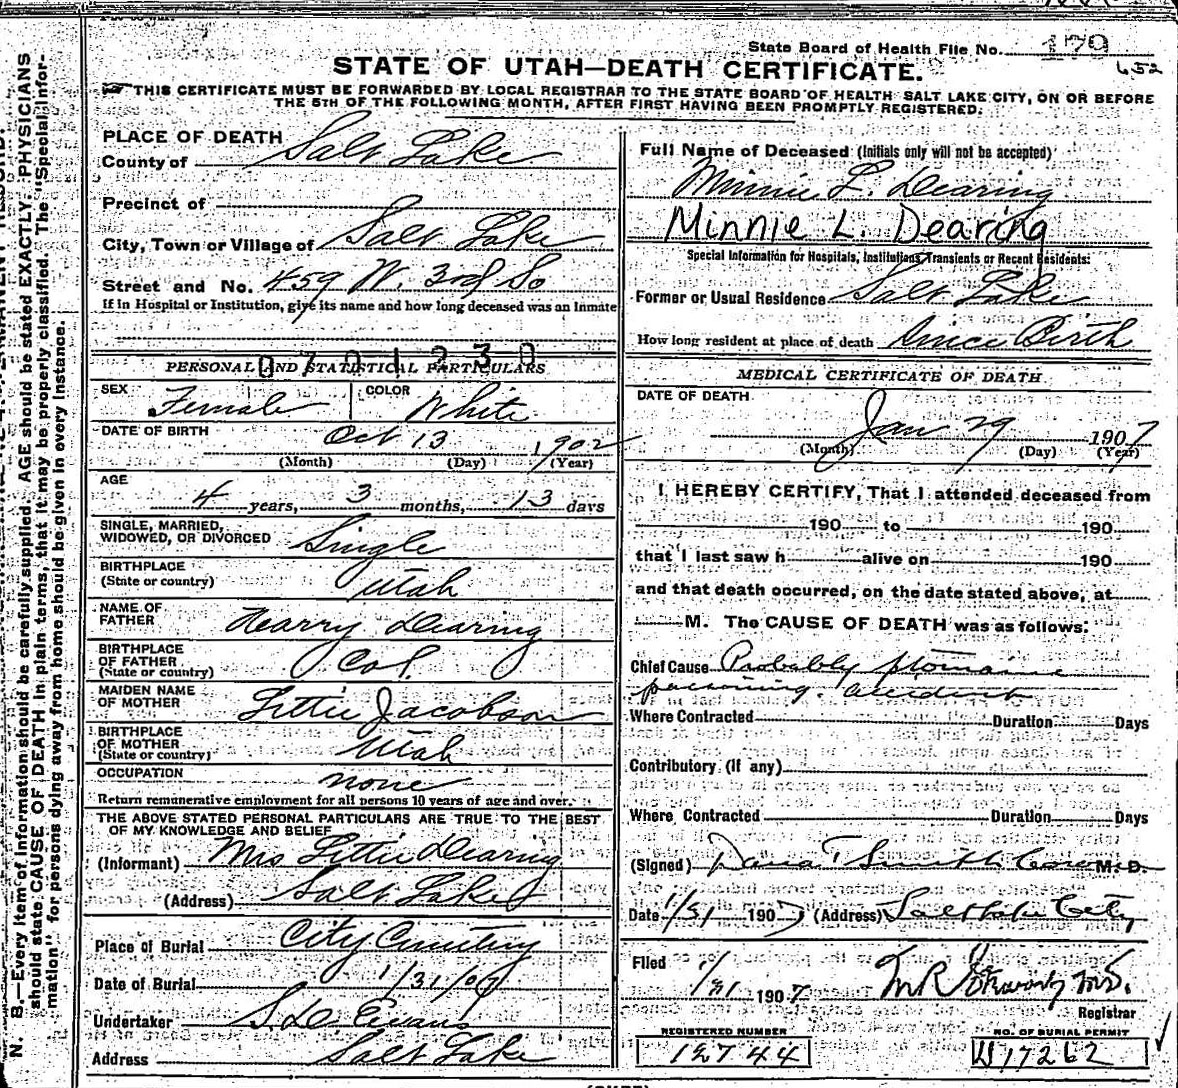 State Board of Health File No. 179
652
STATE OF UTAH—DEATH CERTIFICATE.
THIS CERTIFICATE MUST BE FORWARDED BY LOCAL REGISTRAR TO THE STATE BOARD OF HEALTH SALT LAKE CITY, ON OR BEFORE
THE 5TH OF THE FOLLOWING MONTH, AFTER FIRST HAVING BEEN PROMPTLY REGISTERED.
N. B.—Every item of information should be carefully supplied. AGE should be stated EXACTLY. PHYSICIANS
should state CAUSE OF DEATH in plain terms, that it may be properly classified. The "Special Infor-
mation" for persons dying away from home should be given in every instance.
PLACE OF DEATH
County of Salt Lake
Precinct of
City, Town or Village of Salt Lake
Street and No. 459 W. 3rd So
if in Hospital or Institution, give its name and how long deceased was an Inmate
0701230
PERSONAL AND STATISTICAL PARTICULARS
SEX Female COLOR White
DATE OF BIRTH Oct 13 1902
(Month) (Day) (Year)
AGE
4 years, 3 months, 13 days
SINGLE, MARRIED,
WIDOWED, OR DIVORCED Single
BIRTHPLACE
(State or country) Utah
NAME OF
FATHER Harry Dearing
BIRTHPLACE
OF FATHER
(State or country) Col.
MAIDEN NAME
OF MOTHER Littie Jacobson
BIRTHPLACE
OF MOTHER
(State or country) Utah
OCCUPATION none
Return remunerative employment for all persons 10 years of age and over.
THE ABOVE STATED PERSONAL PARTICULARS ARE TRUE TO THE BEST
OF MY KNOWLEDGE AND BELIEF
(Informant) Mrs Littie Dearing
(Address) Salt Lake
Place of Burial City Cemetery
Date of Burial 1/31/07
Undertaker S. D. Evans
Address Salt Lake
Full Name of Deceased (Initials only will not be accepted)
Minnie L. Dearing
Minnie L. Dearing
Special Information for Hospitals, Institutions, Transients or Recent Residents:
Former or Usual Residence Salt Lake
How long resident at place of death Since Birth
MEDICAL CERTIFICATE OF DEATH
DATE OF DEATH
Jan 29 1907
(Month) (Day) (Year)
I HEREBY CERTIFY, That I attended deceased from
190 to 190
that I last saw h alive on 190
and that death occurred, on the date stated above, at
M. The CAUSE OF DEATH was as follows:
Chief Cause Probably ptomaine
poisoning. accident
Where Contracted Duration Days
Contributory (if any)
Where Contracted Duration Days
(Signed) Dana T Smith M. D.
Date 1/31 1907 (Address) Salt Lake City
Filed 1/31 1907 M.D.
Registrar
REGISTERED NUMBER NO. OF BURIAL PERMIT
12744 17262